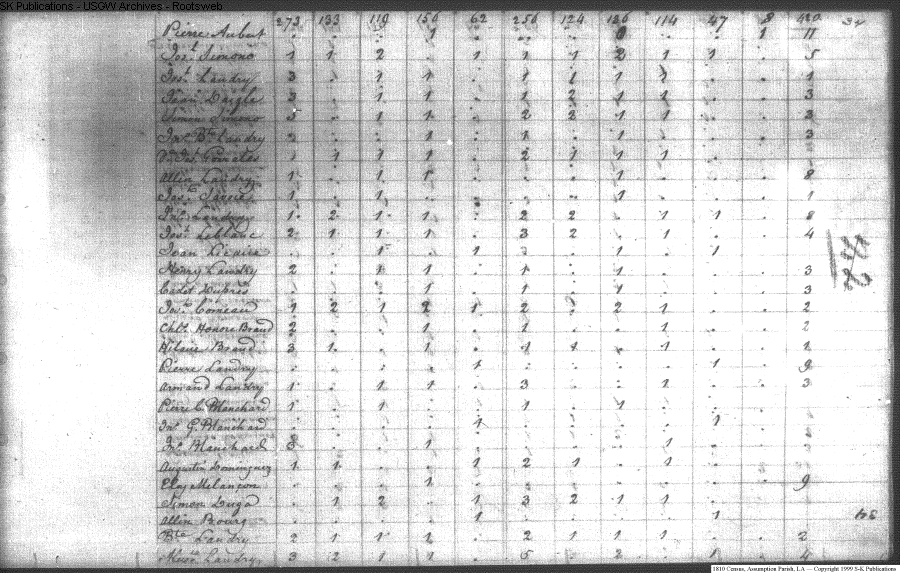 SK Publications - USGW Archives - Rootsweb
273 133 119 150 62 256 124 126 114 47 8 420 34
Pierre Aubert . . . 1 . . . 0 . . 1 11
Jos.t Simono 1 1 2 . 1 1 1 2 1 1 . 5
Jos.t Landry 3 . 1 1 . 1 1 1 1 . . 1
Jean Daigle 3 . 1 1 . 1 2 1 1 . . 3
Simon Simono 3 . 1 1 . 2 2 1 1 . . 3
Jos. Bte Landry 2 . . 1 . 1 . 1 . . . 3
Jos. Gonzales 1 1 1 1 . 2 1 1 1 . .
Allin Landry 1 . 1 1 . . . 1 . . . 8
1 . 1 . . . . 1 . . . 1
Landry 1 2 1 1 . 2 2 . 1 1 . 8
Jos.t Leblanc 2 1 1 1 . 3 2 . 1 . . 4
Jean . . 1 . 1 . . 1 . 1 .
Henry Landry 2 . 1 1 . 1 . 1 . . . 3
Cadet Dubres . . . 1 . 1 . 1 . . . 3
Jos. Comeau 1 2 1 2 1 2 . 2 1 . . 2
Chls. Honore Braud 2 . . 1 . 1 . . 1 . . 2
Hilaire Braud 3 1 . 1 . 1 1 . 1 . . 1
Pierre Landry . . . . 1 . . . . 1 . 9
Armand Landry 1 . 1 1 . 3 . . 1 . . 3
Pierre C. Blanchard 1 . 1 . . 1 . 1 . . .
G. Blanchard . . . . 1 . . . . 1 .
Blanchard 3 . . 1 . . . . 1 . .
Augustin Dominguez 1 1 . . 1 2 1 . 1 . .
Eloy Melancon . . . 1 . . . . . . . 9
Simon Dugá . 1 2 . 1 3 2 1 1 . .
Allin Bourg . . . . 1 . . . . 1 .
Bte Landry 2 1 1 2 . 2 1 1 1 . . 2
Landry 3 2 1 1 . 5 . 2 . 1 . 4
1810 Census, Assumption Parish, LA — Copyright 1999 S-K Publications